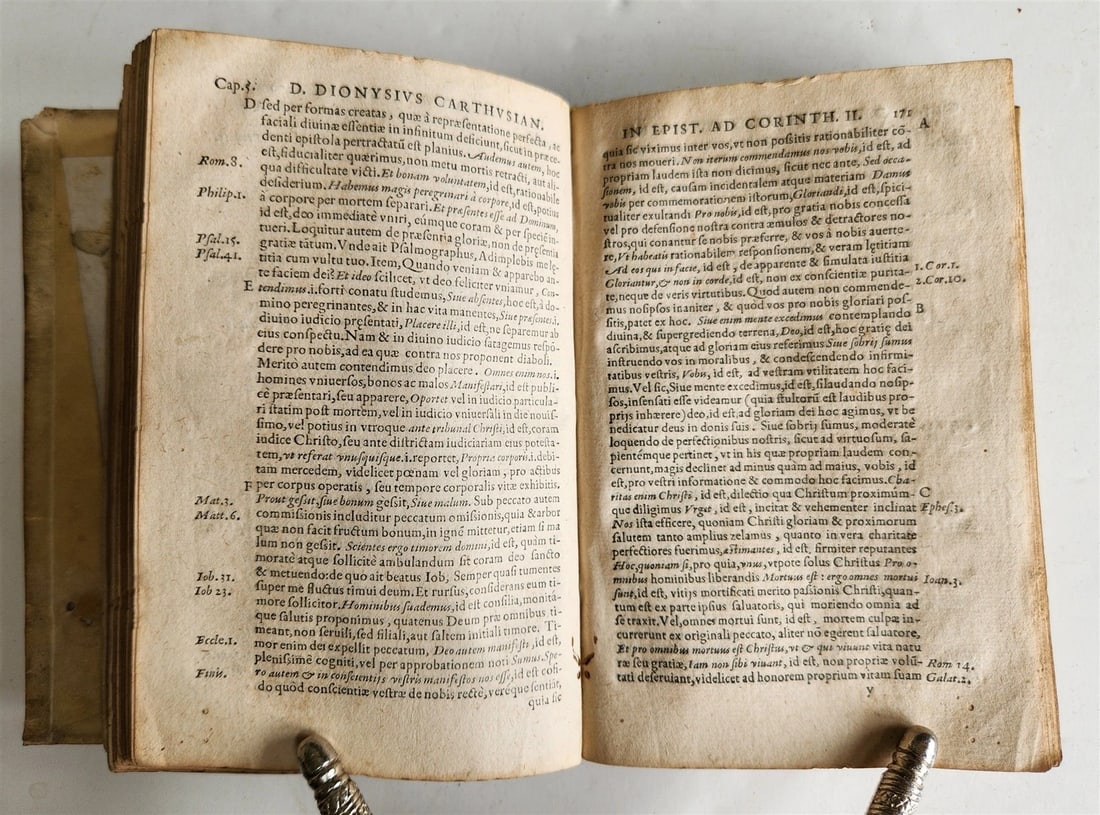 Cap.5. D. DIONYSIVS CARTHVSIAN.
D sed per formas creatas, quæ à repræsentatione perfecta, ac
faciali diuinæ essentiæ in infinitum deficiunt, sicut in præce-
denti epistola pertractatū est planius. Audemus autem, hoc
est, fiducialiter quærimus, non metu mortis retracti, aut ali-
Rom.8. qua difficultate victi. Et bonam voluntatem, id est, rationabile
desiderium. Habemus magis peregrinari à corpore, id est, potius
Philip.1. à corpore per mortem separari. Et præsentes esse ad Dominum,
id est, deo immediatè vniri, eúmque coram & per speciē in-
tueri. Loquitur autem de præsentia gloriæ, non de pręsentia
Psal.15. gratiæ tātum. Vnde ait Psalmographus, Adimplebis me lę-
Psal.41. titia cum vultu tuo. Item, Quando veniam & apparebo an-
te faciem dei? Et ideo scilicet, vt deo feliciter vniamur, Con-
E tendimus .i. forti conatu studemus, Siue absentes, hoc est, à do-
mino peregrinantes, & in hac vita manentes, Siue præsentes .i.
diuino iudicio pręsentati, Placere illi, id est, ne separemur ab
eius conspectu. Nam & in diuino iudicio satagemus respō-
dere pro nobis, ad ea quæ contra nos proponent diaboli.
Meritò autem contendimus deo placere. Omnes enim nos .i.
homines vniuersos, bonos ac malos Manifestari, id est publi-
cè præsentari, seu apparere, Oportet vel in iudicio particula-
ri statim post mortem, vel in iudicio vniuersali in die nouis-
simo, vel potius in vtroque ante tribunal Christi, id est, coram
iudice Christo, seu ante districtam iudiciariam eius potesta-
tem, vt referat vnusquisque .i. reportet, Propria corporis .i. debi-
tam mercedem, videlicet pœnam vel gloriam, pro actibus
F per corpus operatis, seu tempore corporalis vitæ exhibitis.
Mat.3. Prout gessit, siue bonum gessit, Siue malum. Sub peccato autem
Matt.6. commissionis includitur peccatum omissionis, quia & arbor
quæ non facit fructum bonum, in ignē mittetur, etiam si ma
lum non gessit. Scientes ergo timorem domini, id est, quàm ti-
moratè atque sollicitè ambulandum sit coram deo sancto
Iob.31. & metuendo: de quo ait beatus Iob, Semper quasi tumentes
Iob 23. super me fluctus timui deum. Et rursus, considerans eum ti-
more sollicitor. Hominibus suademus, id est consilia, monita-
que salutis proponimus, quatenus Deum præ omnibus ti-
meant, non seruili, sed filiali, aut saltem initiali timore. Ti-
Eccle.1. mor enim dei expellit peccatum, Deo autem manifesti, id est,
plenissimè cogniti, vel per approbationem noti Sumus. Spe-
Finis. ro autem & in conscientijs vestris manifestos nos esse, id est confi-
do quòd conscientiæ vestræ de nobis rectè, veréque sentiāt,
quia sic
IN EPIST. AD CORINTH. II. 171
quia sic viximus inter vos, vt non possitis rationabiliter cō- A
tra nos moueri. Non iterum commendamus nos vobis, id est, ad
propriam laudem ista non dicimus, sicut nec ante, Sed occa-
sionem, id est, causam incidentalem atque materiam Damus
vobis per commemorationem istorum, Gloriandi, id est, spiri-
tualiter exultandi Pro nobis, id est, pro gratia nobis concessa
vel pro defensione nostra contra æmulos & detractores no-
stros, qui conantur se nobis præferre, & vos à nobis auerte-
re, Vt habeatis rationabilem responsionem, & veram lętitiam
Ad eos qui in facie, id est, de apparente & simulata iustitia
Gloriantur, & non in corde, id est, non ex conscientiæ purita- 1.Cor.1.
te, neque de veris virtutibus. Quòd autem non commende- 2.Cor.10.
mus nosipsos inaniter, & quòd vos pro nobis gloriari pos- B
sitis, patet ex hoc. Siue enim mente excedimus contemplando
diuina, & supergrediendo terrena, Deo, id est, hoc gratię dei
ascribimus, atque ad gloriam eius referimus Siue sobrij sumus
instruendo vos in moralibus, & condescendendo infirmi-
tatibus vestris, Vobis, id est, ad vestram vtilitatem hoc faci-
mus. Vel sic, Siue mente excedimus, id est, si laudando nosip-
sos, insensati esse videamur (quia stultorū est laudibus pro-
prijs inhærere) deo, id est, ad gloriam dei hoc agimus, vt be
nedicatur deus in donis suis. Siue sobrij sumus, moderatè
loquendo de perfectionibus nostris, sicut ad virtuosum, sa-
pientémque pertinet, vt in his quæ propriam laudem con-
cernunt, magis declinet ad minus quàm ad maius, vobis, id
est, pro vestri informatione & commodo hoc facimus. Cha-
ritas enim Christi, id est, dilectio qua Christum proximúm- C
que diligimus Vrget, id est, incitat & vehementer inclinat Ephes.3.
Nos ista efficere, quoniam Christi gloriam & proximorum
salutem tanto amplius zelamus, quanto in vera charitate
perfectiores fuerimus, æstimantes, id est, firmiter reputantes
Hoc, quoniam si, pro quia, vnus, vtpote solus Christus Pro o-
mnibus hominibus liberandis Mortuus est: ergo omnes mortui Ioan.3.
sunt, id est, vitijs mortificati merito passionis Christi, quan-
tum est ex parte ipsius saluatoris, qui moriendo omnia ad
se traxit. Vel, omnes mortui sunt, id est, mortem culpæ in-
currerunt ex originali peccato, aliter nō egerent saluatore,
Et pro omnibus mortuus est Christus, vt & qui viuunt vita natu
ræ seu gratiæ, Iam non sibi viuant, id est, non propriæ volū- Rom 14.
tati deseruiant, videlicet ad honorem proprium vitam suam Galat.2.
y